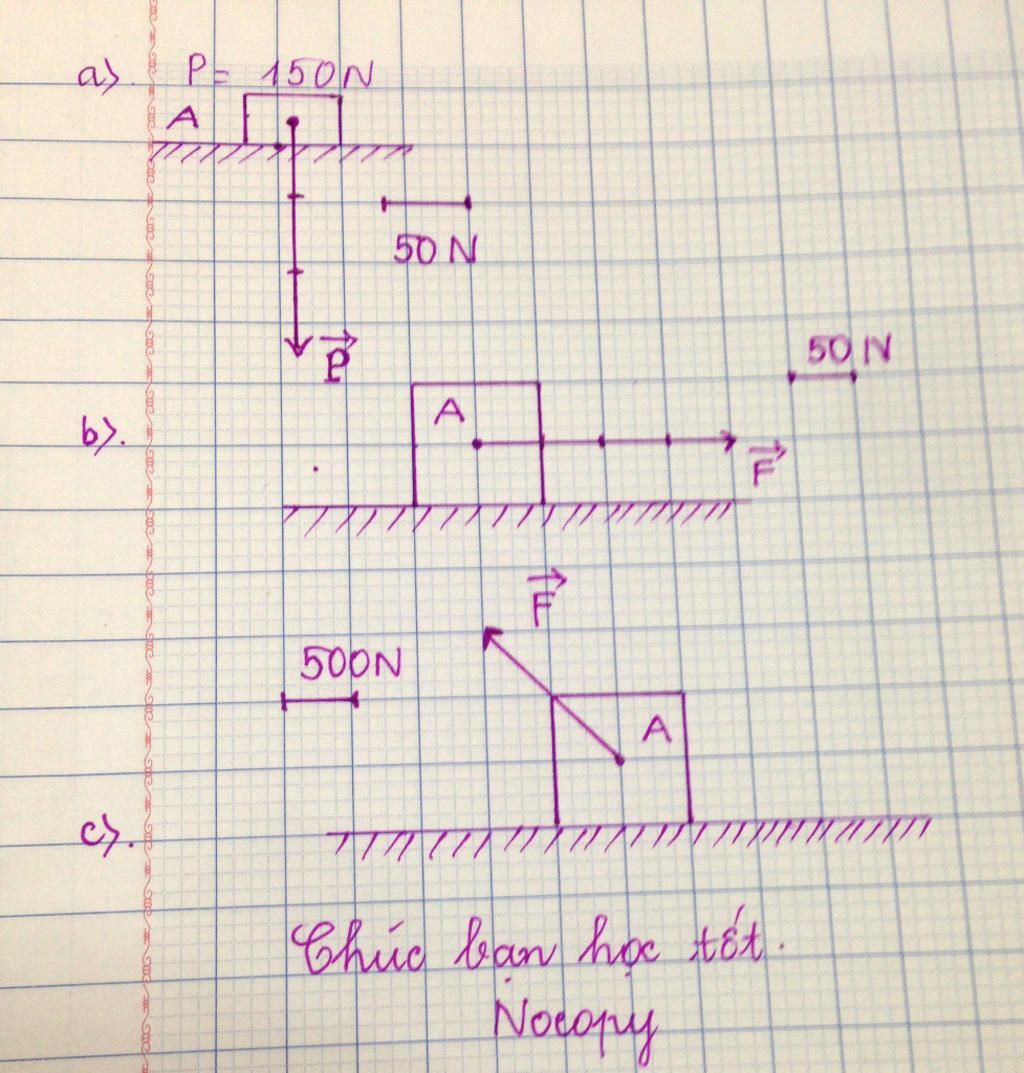 a) P = 150N
A
50 N
P
50 N
b). A
F
F
500N
A
c).
Chúc bạn học tốt.
Nocopy